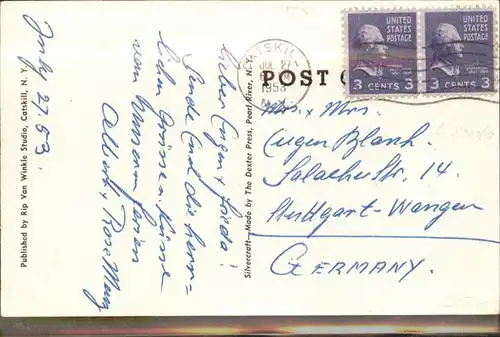 July 27. 53.
Lieber Eugen & Frieda!
Sende Euch die herz=
lichen Grüsse u. Küsse
von unseren Ferien
Albert & Rose Mary
Published by Rip Van Winkle Studio, Catskill, N. Y.
Silvercraft—Made by The Dexter Press, Pearl River, N.Y.
CATSKILL
JUL 27
1953
N.Y.
UNITED
STATES
POSTAGE
3 CENTS 3
UNITED
STATES
POSTAGE
3 CENTS 3
POST C
Mr. & Mrs.
Eugen Blank.
Salacher Str. 14
Stuttgart-Wangen
GERMANY.